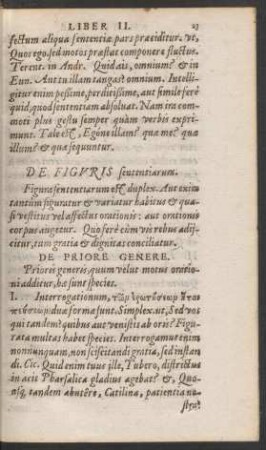 LIBER II.
fectum aliqua sententiæ pars præciditur. ut,
Quos ego, sed motos præstat componere fluctus.
Terent. in Andr. Quid, ais, omnium? & in
Eun. Aut tu illam tangas? omnium. Intelli-
gitur enim pessime, perditissime, aut simile fere
quid, quod sententiam absoluat. Nam ira com-
moti plus gestu semper quàm verbis expri-
munt. Tale est, Egône illam? quæ me? quæ
illum? & quæ sequuntur.
DE FIGVRIS sententiarum.
Figura sententiarum est duplex. Aut enim
tantùm figuratur & variatur habitus & qua-
si vestitus vel affectus orationis: aut orationis
corpus augetur. Quo fere cùm vis rebus adij-
citur, tum gratia & dignitas conciliatur.
DE PRIORE GENERE.
Prioris generis, quum velut motus oratio-
ni additur, hæ sunt species.
I. Interrogationum,
duæ formæ sunt. Simplex. ut, Sed vos
qui tandem? quibus aut venistis ab oris? Figu-
rata multas habet species. Interrogamus enim
nonnunquam, non sciscitandi gratia, sed instan-
di. Cic. Quid enim tuus ille, Tubero, districtus
in acie Pharsalica gladius agebat? &, Quo-
usq, tandem abutêre, Catilina, patientia no-
stra?